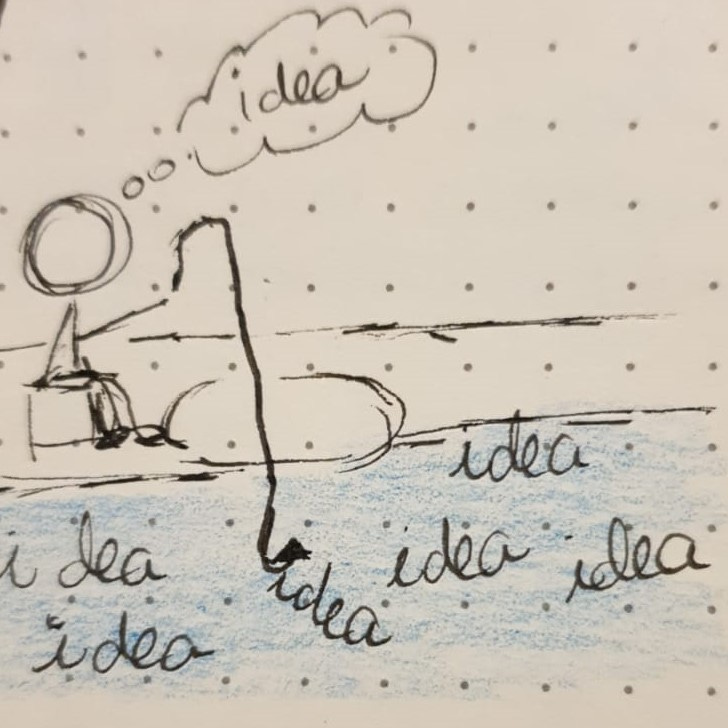 idea
idea
i dea idea idea
idea
idea